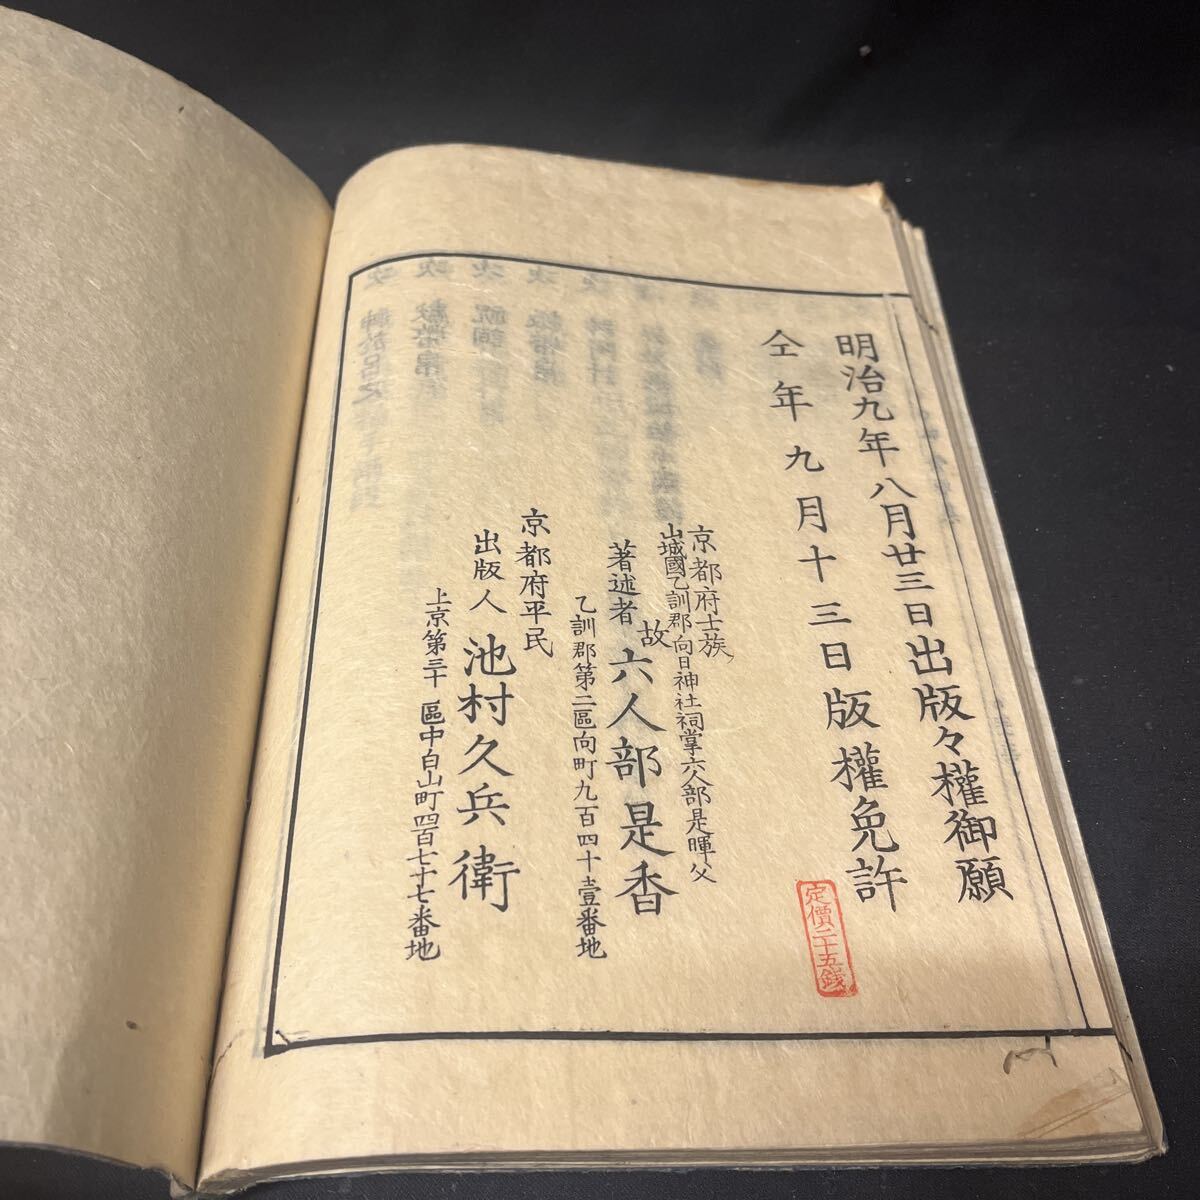 明治九年八月廿三日出版々權御願
仝年九月十三日版權免許
定價二十五錢
京都府士族
山城國乙訓郡向日神社祠掌六人部是暉父
著述者 故 六人部是香
乙訓郡第二區向町九百四十壹番地
京都府平民
出版人 池村久兵衛
上京第三十區中白山町四百七十七番地